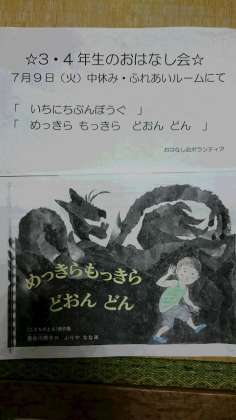 ☆3・4年生のおはなし会☆
7月9日(火)中休み・ふれあいルームにて
「 いちにちぶんぼうぐ 」
「 めっきら もっきら どおん どん 」
おはなし会ボランティア
めっきらもっきら
どおん どん